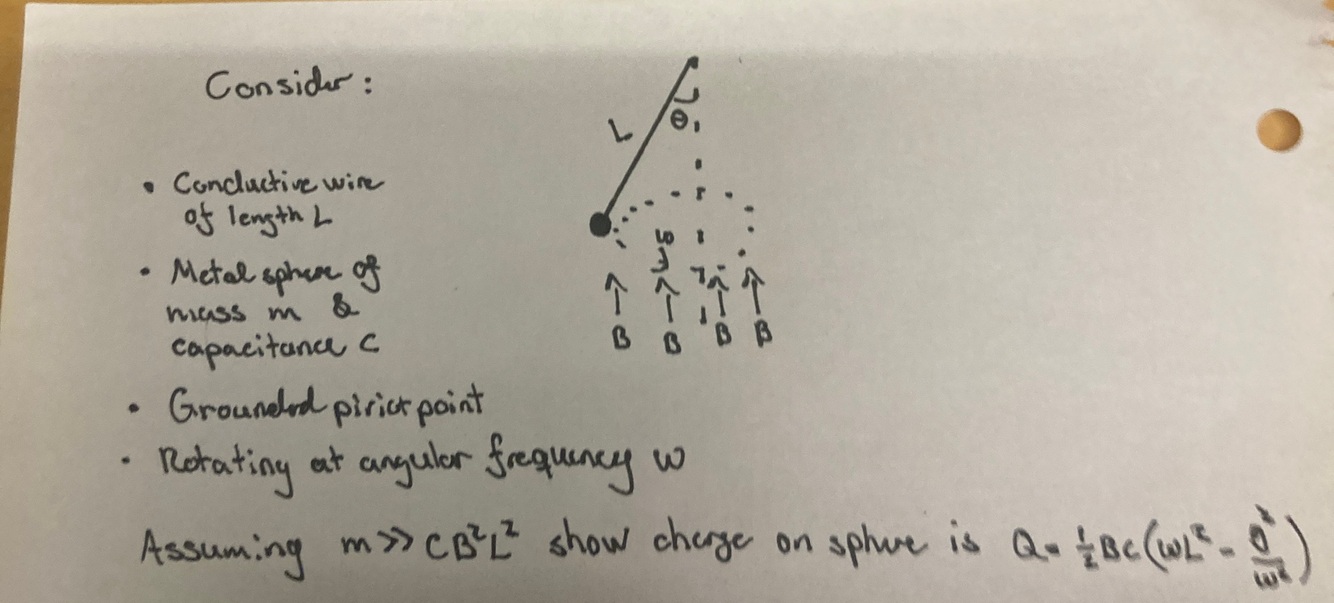 Consider:
L
θ
• Conductive wire
of length L
ω
• Metal sphere of
mass m &
capacitance C
B B B B
• Grounded pivot point
• Rotating at angular frequency ω
Assuming m >> CB²L² show charge on sphere is Q = ½BC(ωL² - g²/ω²)